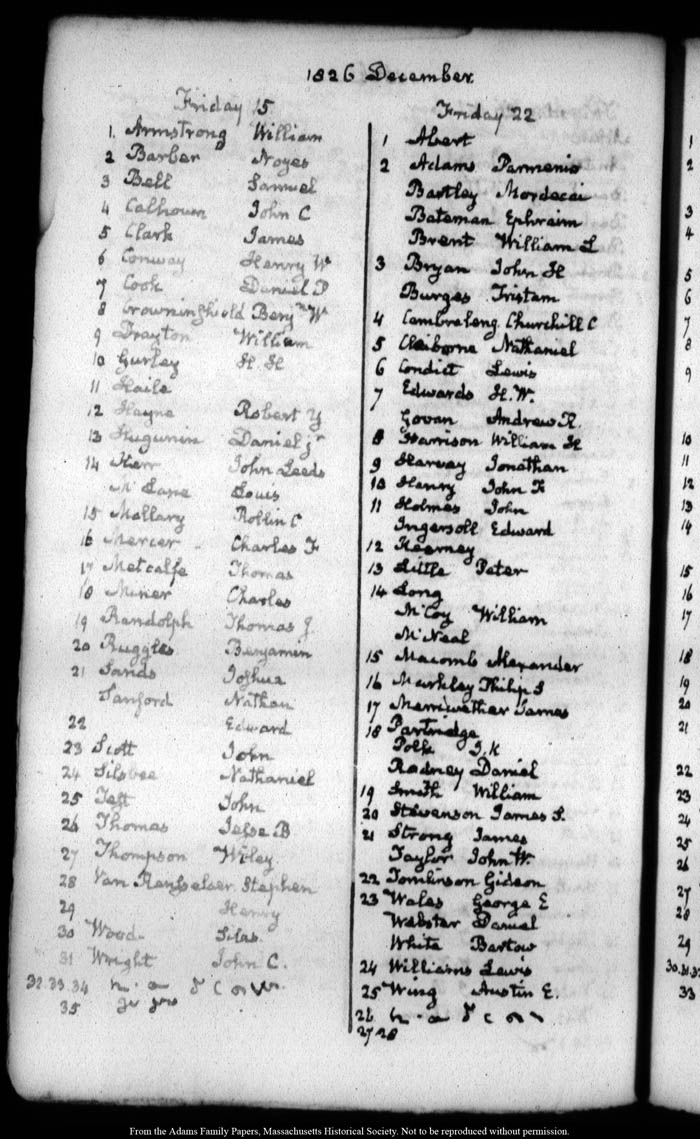 1826 December.
Friday 15
1. Armstrong William
2 Barber Noyes
3 Bell Samuel
4 Calhoun John C
5 Clark James
6 Conway Henry W
7 Cook Daniel P
8 Crowninshield Benjn W
9 Drayton William
10 Gurley H. H
11 Haile
12 Hayne Robert Y
13 Hugunin Daniel jr
14 Kerr John Leeds
McLane Louis
15 Mallary Rollin C
16 Mercer Charles F
17 Metcalfe Thomas
18 Miner Charles
19 Randolph Thomas J.
20 Ruggles Benjamin
21 Sands Joshua
Sanford Nathan
22 Edward
23 Scott John
24 Silsbee Nathaniel
25 Test John
26 Thomas Jesse B
27 Thompson Wiley
28 Van Rensselaer Stephen
29 Henry
30 Wood Silas
31 Wright John C.
32.33.34
35
Friday 22
1 Abert
2 Adams Parmenio
Bartley Mordecai
Bateman Ephraim
Brent William L
3 Bryan John H
Burges Tristam
4 Cambreleng Churchill C
5 Claiborne Nathaniel
6 Condict Lewis
7 Edwards H. W.
Govan Andrew R
8 Harrison William H
9 Harvey Jonathan
10 Henry John F
11 Holmes John
Ingersoll Edward
12 Kearney
13 Little Peter
14 Long
McCoy William
McNeal
15 Macomb Alexander
16 Markley Philip S
17 Merriwether James
18 Partridge
Polk J. K
Rodney Daniel
19 Smith William
20 Stevenson James S.
21 Strong James
Taylor John W.
22 Tomlinson Gideon
23 Wales George E
Webster Daniel
White Bartow
24 Williams Lewis
25 Wing Austin E.
26
27 28
1
2
3
4
5
6
7
8
9
10
11
12
13
14
15
16
17
18
19
20
21
22
23
24
25
26
27
28
29
30.31.32
33
From the Adams Family Papers, Massachusetts Historical Society. Not to be reproduced without permission.